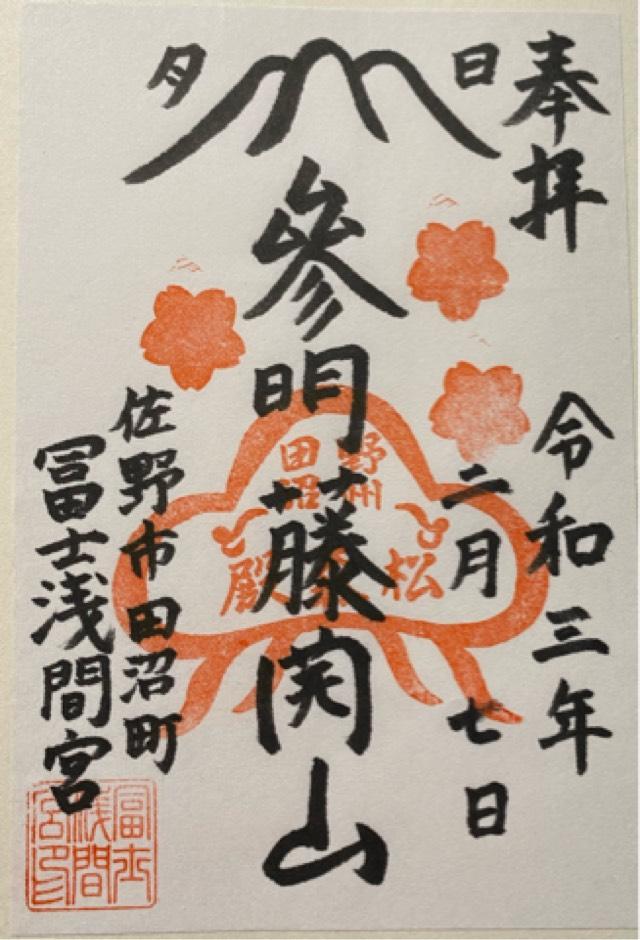 奉拝
令和三年
二月七日
日
月
參明藤開山
野州
田沼
松
殿
佐野市田沼町
冨士浅間宮
冨士
浅間
宮印